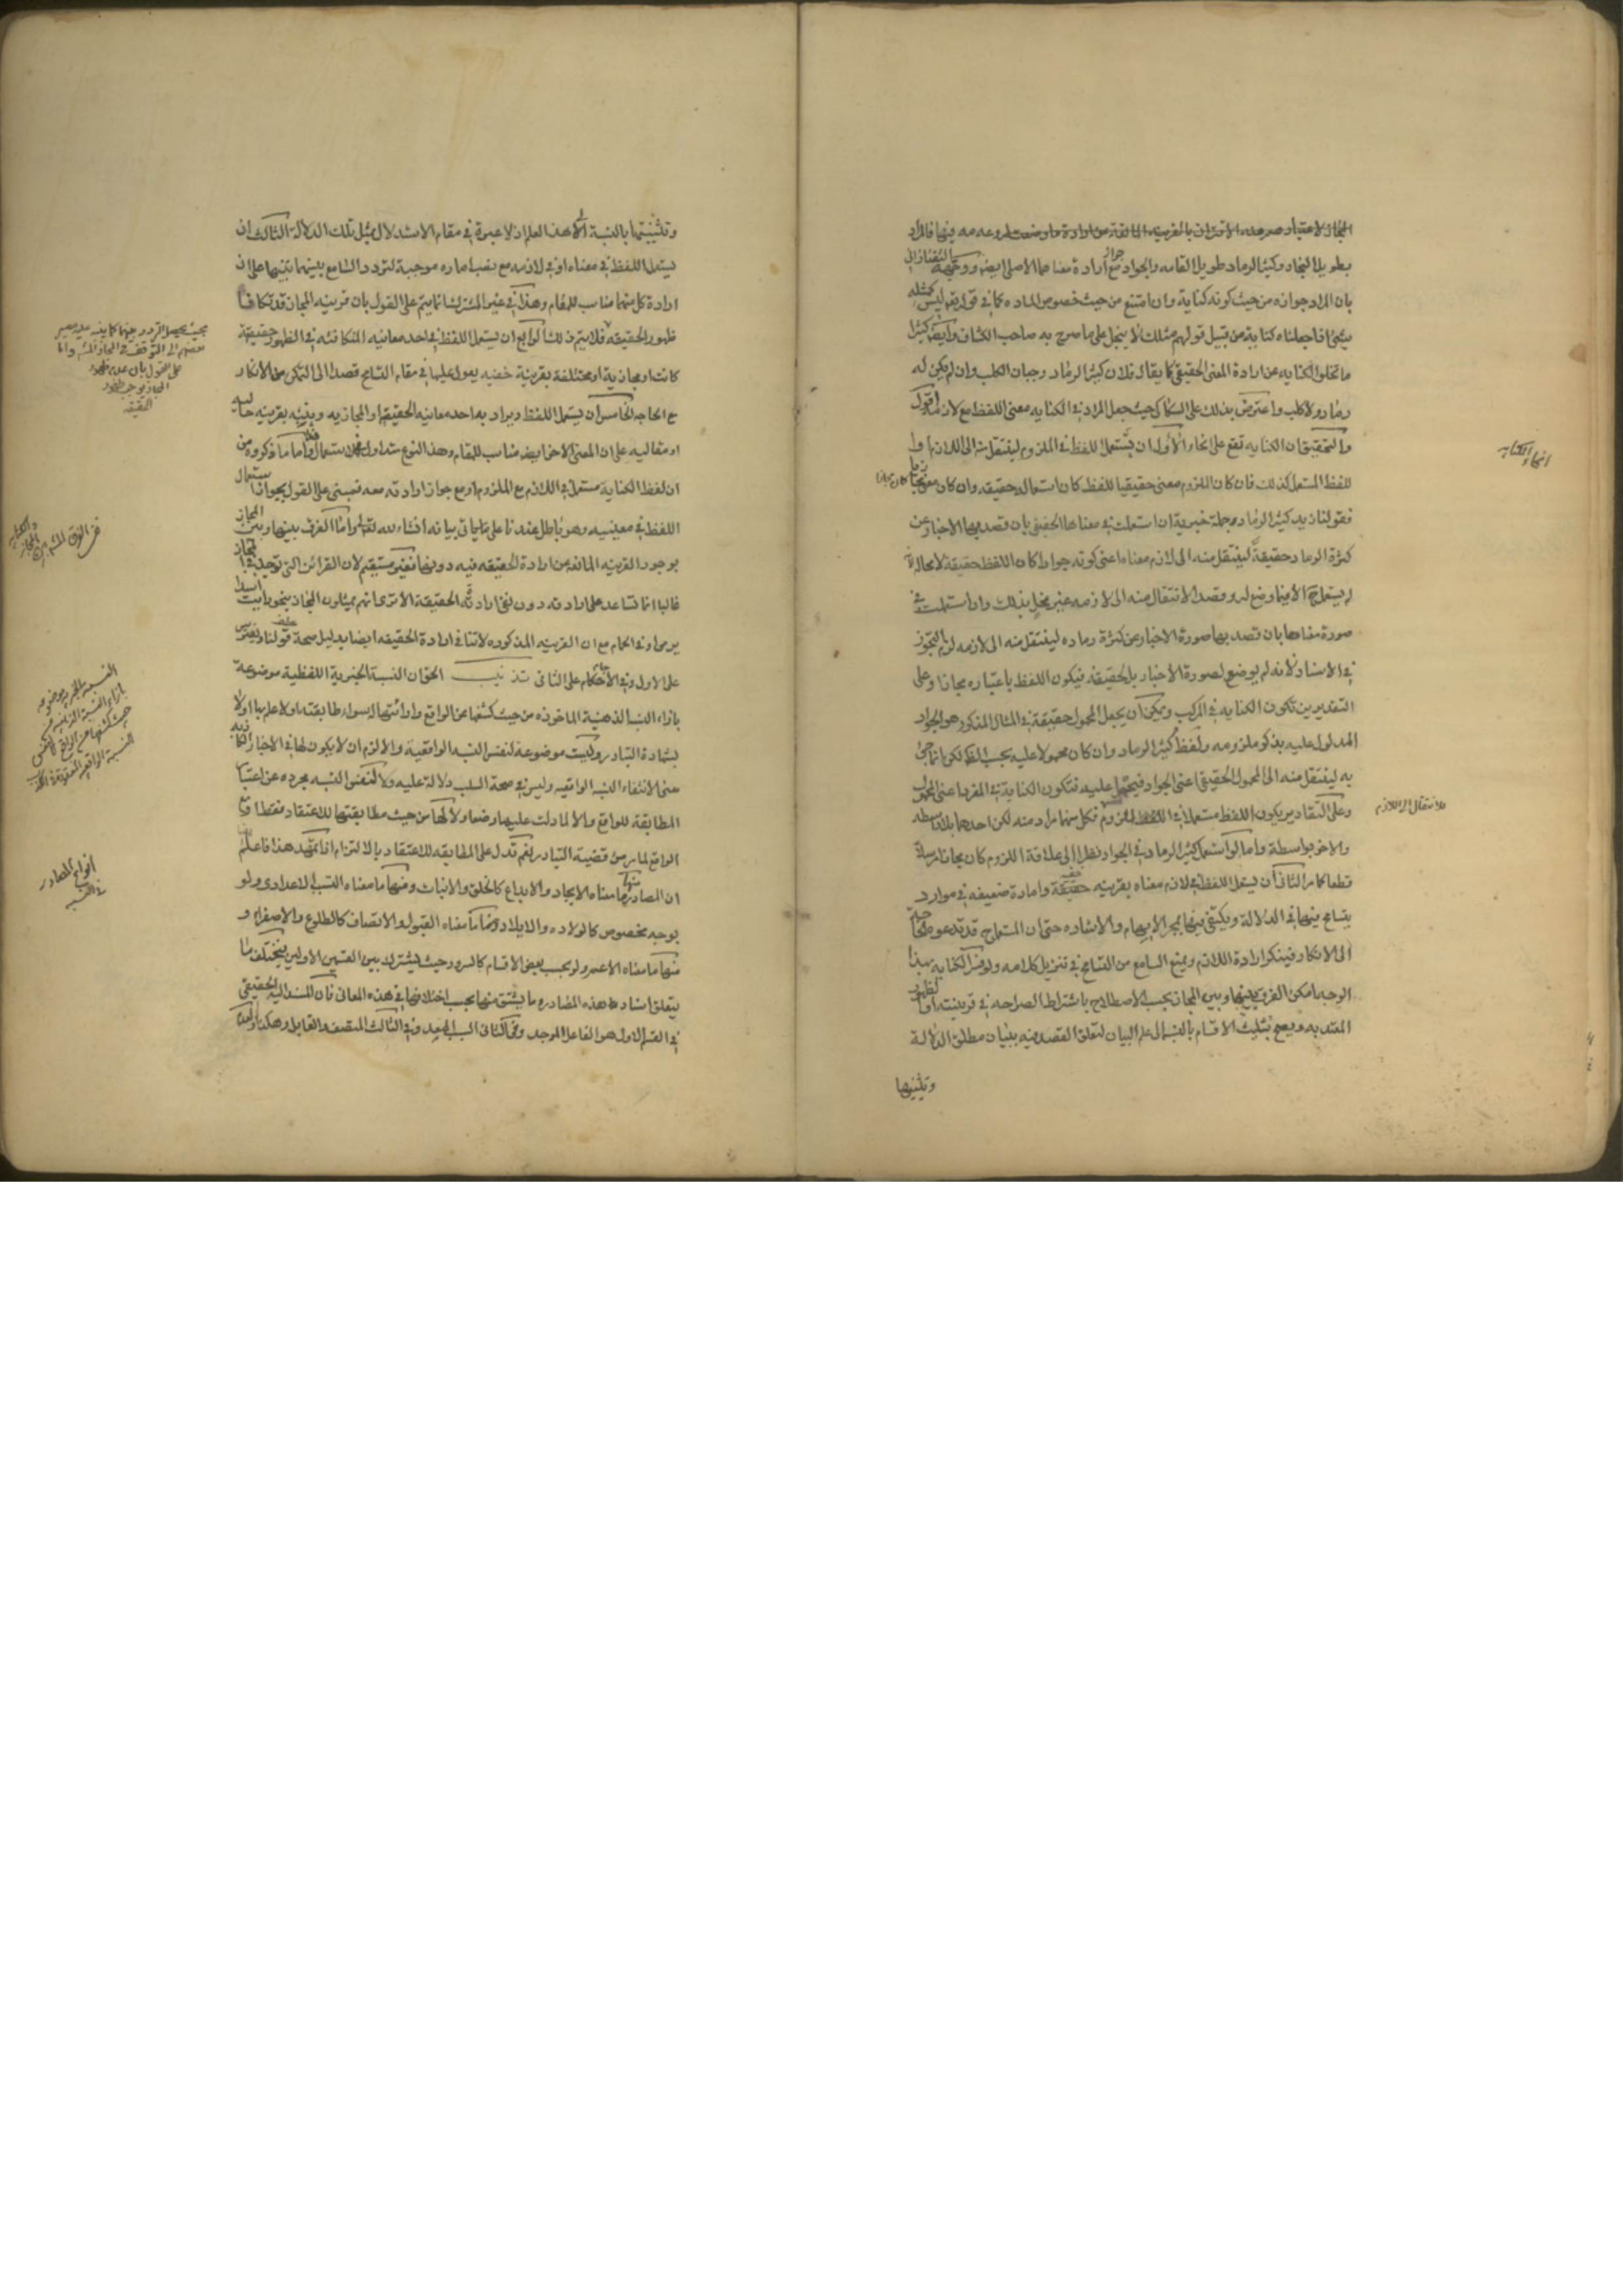 المجاز لاعتباره صرحه الاقتران بالقرينه المانعة من ارادة ما وضعت له وعدمه فيها فالمراد
بطويل النجاد وكثير الرماد طويل القامه والجواد مع جواز ارادة معناهما الاصلى ايضا ووجهه التفتازانى
بان المراد جوازه من حيث كونه كناية وان امتنع من حيث خصوص الماده كما فى قوله تعالى ليس كمثله
شئ اذا جعلناه كناية من قبيل قولهم مثلك لا يبخل على ما صرح به صاحب الكشاف وايضا كثيرا
ما تخلو الكنايه عن ارادة المعنى الحقيقى كما يقال فلان كثير الرماد وجبان الكلب وان لم يكن له
رماد ولا كلب واعترض بذلك على السكاكى حيث جعل المراد فى الكنايه معنى اللفظ مع لازمه اقول
والتحقيق ان الكنايه تقع على انحاء الاول ان يستعمل اللفظ فى الملزوم لينتقل منه الى اللازم
اللفظ المستعمل كذلك فان كان الملزوم معنى حقيقيا للفظ كان استعماله حقيقه وان كان معنى مجازيا كان مجازا
فقولنا زيد كثير الرماد جملة خبرية ان استعملت فى معناها الحقيقى بان قصد بها الاخبار عن
كثرة الرماد حقيقة لينتقل منه الى لازم معناه اعنى كونه جوادا كان اللفظ حقيقة لا محالة لانه
لم يستعمل الا فيما وضع له وقصد الانتقال منه الى لازمه غير مخل بذلك وان استعملت فى
صورة معناها بان قصد بها صورة الاخبار عن كثرة رماده لينتقل منه الى لازمه لزم التجوز
فى الاسناد لانه لم يوضع لصورة الاخبار بل لحقيقته فيكون اللفظ باعتباره مجازا وعلى
التقديرين تكون الكنايه فى المركب ويمكن ان يجعل المحمول حقيقة فى المثال المذكور هو الجواد
المدلول عليه بذكر ملزومه ولفظ كثير الرماد وان كان محمولا عليه بحسب اللفظ لكن انما جئ
به لينتقل منه الى المحمول الحقيقى اعنى الجواد فيحمل عليه فتكون الكناية فى المفرد اعنى المحمول
وعلى التقادير يكون اللفظ مستعملا فى الملزوم فكل منهما مراد منه لكن احدهما بلا واسطه
والاخر بواسطة واما لو استعمل كثير الرماد فى الجواد نظرا الى علاقة اللزوم كان مجازا مرسلا
قطعا كما مر الثانى ان يستعمل اللفظ فى لازم معناه بقرينه خفيه وامارة ضعيفه فى موارد
يتسامح فيها فى الدلالة ويكتفى فيها بمجرد الايهام والاشاره حتى ان المتسامح قد تدعوه الحاجة
الى الانكار فينكر ارادة اللازم ويمنع السامع من التسامح فى تنزيل كلامه ولو فسر الكنايه بهذا
الوجه امكن الفرق بينها وبين المجاز بحسب الاصطلاح باشتراط الصراحه فى قرينته او الظهور
المعتد به ويصح تثليث الاقسام بالنسبة الى علم البيان لتعلق القصد فيه ببيان مطلق الدلالة
وتثنيتها
انحاء الكنايه
للانتقال الى اللازم
وتثنيتها بالنسبة الى هذا العلم اذ لا عبرة فى مقام الاستدلال بمثل تلك الدلالة الثالث ان
يستعمل اللفظ فى معناه او فى لازمه مع نصب اماره موجبة لتردد السامع بينهما تنبيها على ان
ارادة كل منهما مناسب للمقام وهذا فى غير المشترك انما يتم على القول بان قرينه المجاز قد تكافأ
ظهور الحقيقه فلا يتم ذلك الرابع ان يستعمل اللفظ فى احد معانيه المتكافئه فى الظهور حقيقية
كانت او مجازية او مختلفة بقرينة خفيه يعول عليها فى مقام التسامح قصدا الى التمكن من الانكار
مع الحاجه الخامس ان يستعمل اللفظ ويراد به احد معانيه الحقيقه او المجازيه وينبه بقرينه حاليه
او مقاليه على ان المعنى الاخر ايضا مناسب للمقام وهذا النوع متداول واما ما ذكروه من
ان لفظ الكناية مستعمل فى اللازم مع الملزوم او مع جواز ارادته معه فمبنى على القول بجواز استعمال
اللفظ فى معنييه وهو باطل عندنا على ما ياتى بيانه انشاء الله تعالى واما الفرق بينها وبين المجاز
بوجود القرينه المانعه عن ارادة الحقيقه فيه دونها فغير مستقيم لان القرائن التى توجد فى المجاز
غالبا انما تساعد على ارادته دون نفى ارادة الحقيقة الا ترى انهم يمثلون المجاز بنحو رايت اسدا
يرمى او فى الحمام مع ان القرينه المذكوره لا تنافى ارادة الحقيقه ايضا بدليل صحة قولنا
على الاول وفى الحمام على الثانى تذنيب الحق ان النسبة الخبرية اللفظية موضوعة
بازاء النسبة الذهنية الماخوذه من حيث كشفها عن الواقع وارائتها له سواء طابقته اولا علم بها اولا
بشهادة التبادر وليست موضوعة لنفس النسبه الواقعية والا لزم ان لا يكون لها فى الاخبار الكاذبه
معنى لانتفاء النسبه الواقعيه وليس فى صحة السلب دلالة عليه ولا لنفس النسبه مجرده عن اعتبار
المطابقة للواقع والا لما دلت عليها وضعا ولا لها من حيث مطابقتها للاعتقاد فقط او مع
الواقع لما مر من قضية التبادر نعم تدل على المطابقه للاعتقاد بالالتزام اذا تمهد هذا فاعلم
ان المصادر منها ما معناه الايجاد والابداع كالخلق والانبات ومنها ما معناه التسبب الاعدادى ولو
بوجه مخصوص كالولاده والايلاد ومنها ما معناه القبول والاتصاف كالطلوع والاصفرار و
منها ما معناه الاعم ولو بحسب بعض الاقسام كالسرور حيث يشترك بين القسمين الاولين فيختلف ما
يتعلق اسناد هذه المصادر وما يشتق منها بحسب اختلافها فى هذه المعانى فان المسند اليه الحقيقى
فى القسم الاول هو الفاعل الموجد وفى الثانى السبب المعد وفى الثالث المتصف والقابل وهكذا
بحيث يحصل التردد بينهما كما ينبه عليه مصير
بعضهم الى التوقف فى المجاز المشهور واما
على القول بان عدم ظهور
المجاز يوجب ظهور
الحقيقه
فى الفرق المشهور بين المجاز والكنايه
النسبة الخبريه موضوعه
بازاء النسبة الذهنيه من
حيث كشفها عن الواقع لا نفس
النسبة الواقعيه
انواع المصادر
فى النسبه